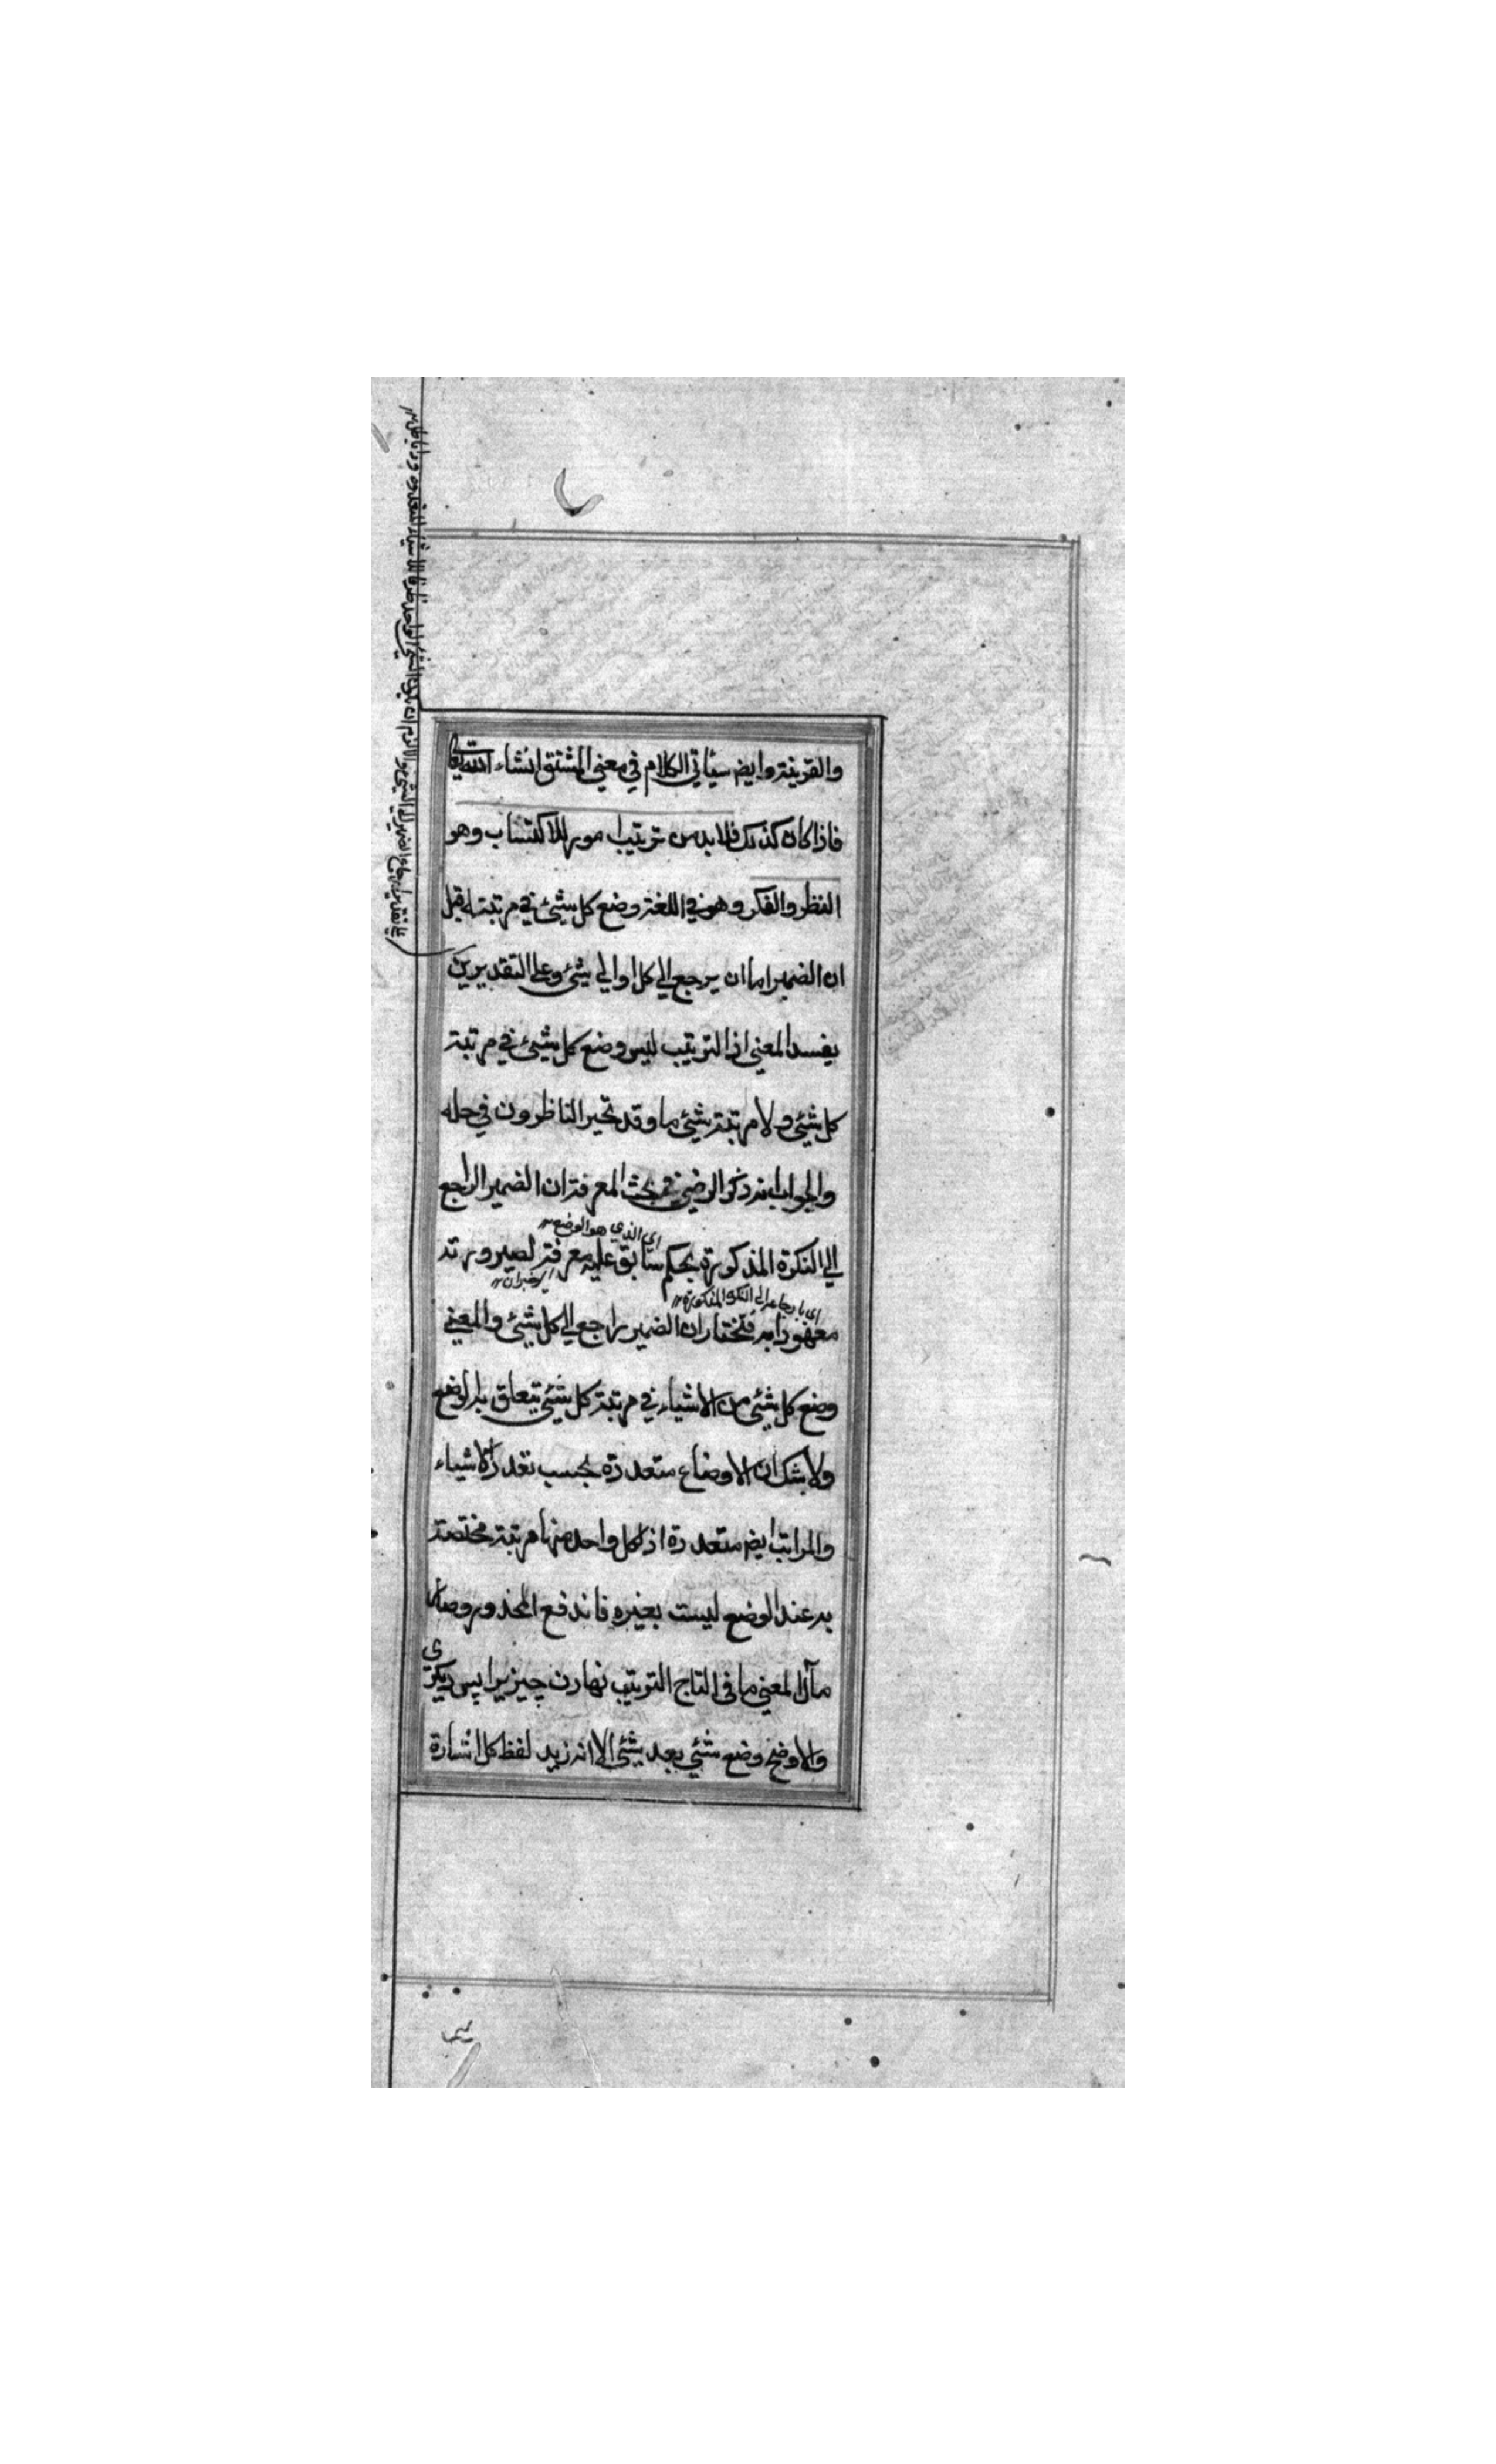 والقرينة وايض سيأتي الكلام في معني المشتق انشاء الله تعا
فاذا كان كذلك فلا بد من ترتيب امور للاكتساب وهو
النظر والفكر وهو في اللغة وضع كل شيئ في مرتبته قيل
ان الضمير اما ان يرجع الي كل او الي شيئ وعلي التقديرين
يفسد المعني اذ الترتيب ليس وضع كل شيئ في مرتبة
كل شيئ ولا مرتبة شيئ ما وقد تحير الناظرون في حله
والجواب انه ذكر الرضي في بحث المعرفة ان الضمير الراجع
اي الذي هو الوضع
الي النكرة المذكورة بحكم سابق عليه معرفة لصيرورته
اي بارجاعه الي النكرة المذكورة
معهودا به فنختار ان الضمير راجع الي كل شيئ والمعني
وضع كل شيئ من الاشياء في مرتبة كل شيئ تتعلق به الوضع
ولا شك ان الاوضاع متعددة بحسب تعدد الاشياء
والمراتب ايض متعددة اذ لكل واحد منها مرتبة مختصة
به عند الوضع ليست بغيره فاندفع المحذور وصار
مآل المعني ما في التاج الترتيب نهادن چيزيرا پس ديگري
والاوضح وضع شيئ بعد شيئ الا انه زيد لفظ كل اشارة